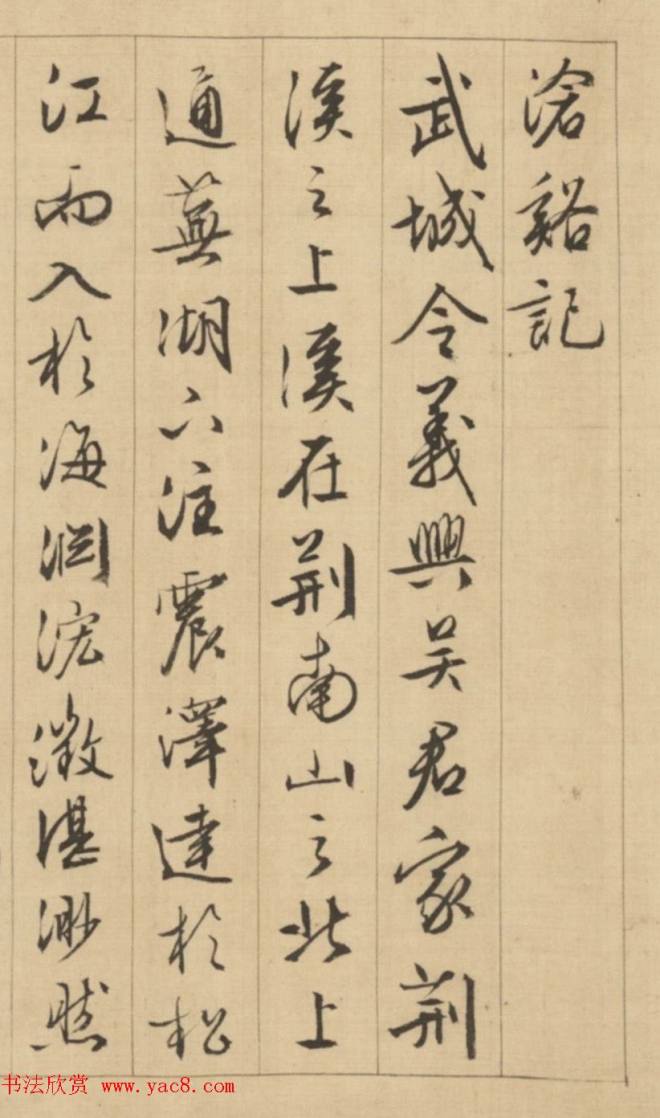 滄谿記
武城令義興吴君家荆
溪之上溪在荆南山之北上
通蕪湖下注震澤達於松
江而入於海淵浤澂湛渺然
书法欣赏 www.yac8.com